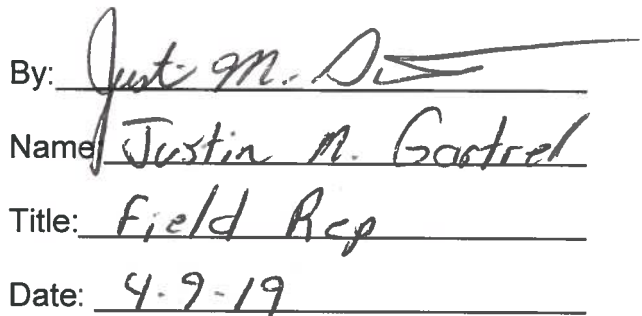 By: Just M.
Name: Justin M. Gartrel
Title: Field Rep
Date: 4-9-19